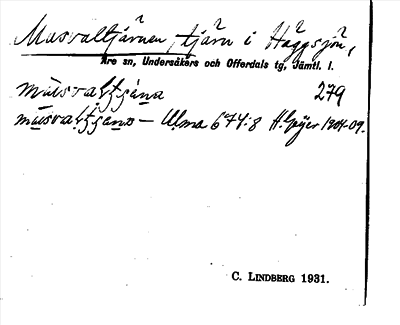 Musvaltjärnen, tjärn i Häggsjön,
Åre sn, Undersåkers och Offerdals tg, Jämtl. l.
279
Ulma 674:8 H. Geijer 1904-09.
C. LINDBERG 1931.